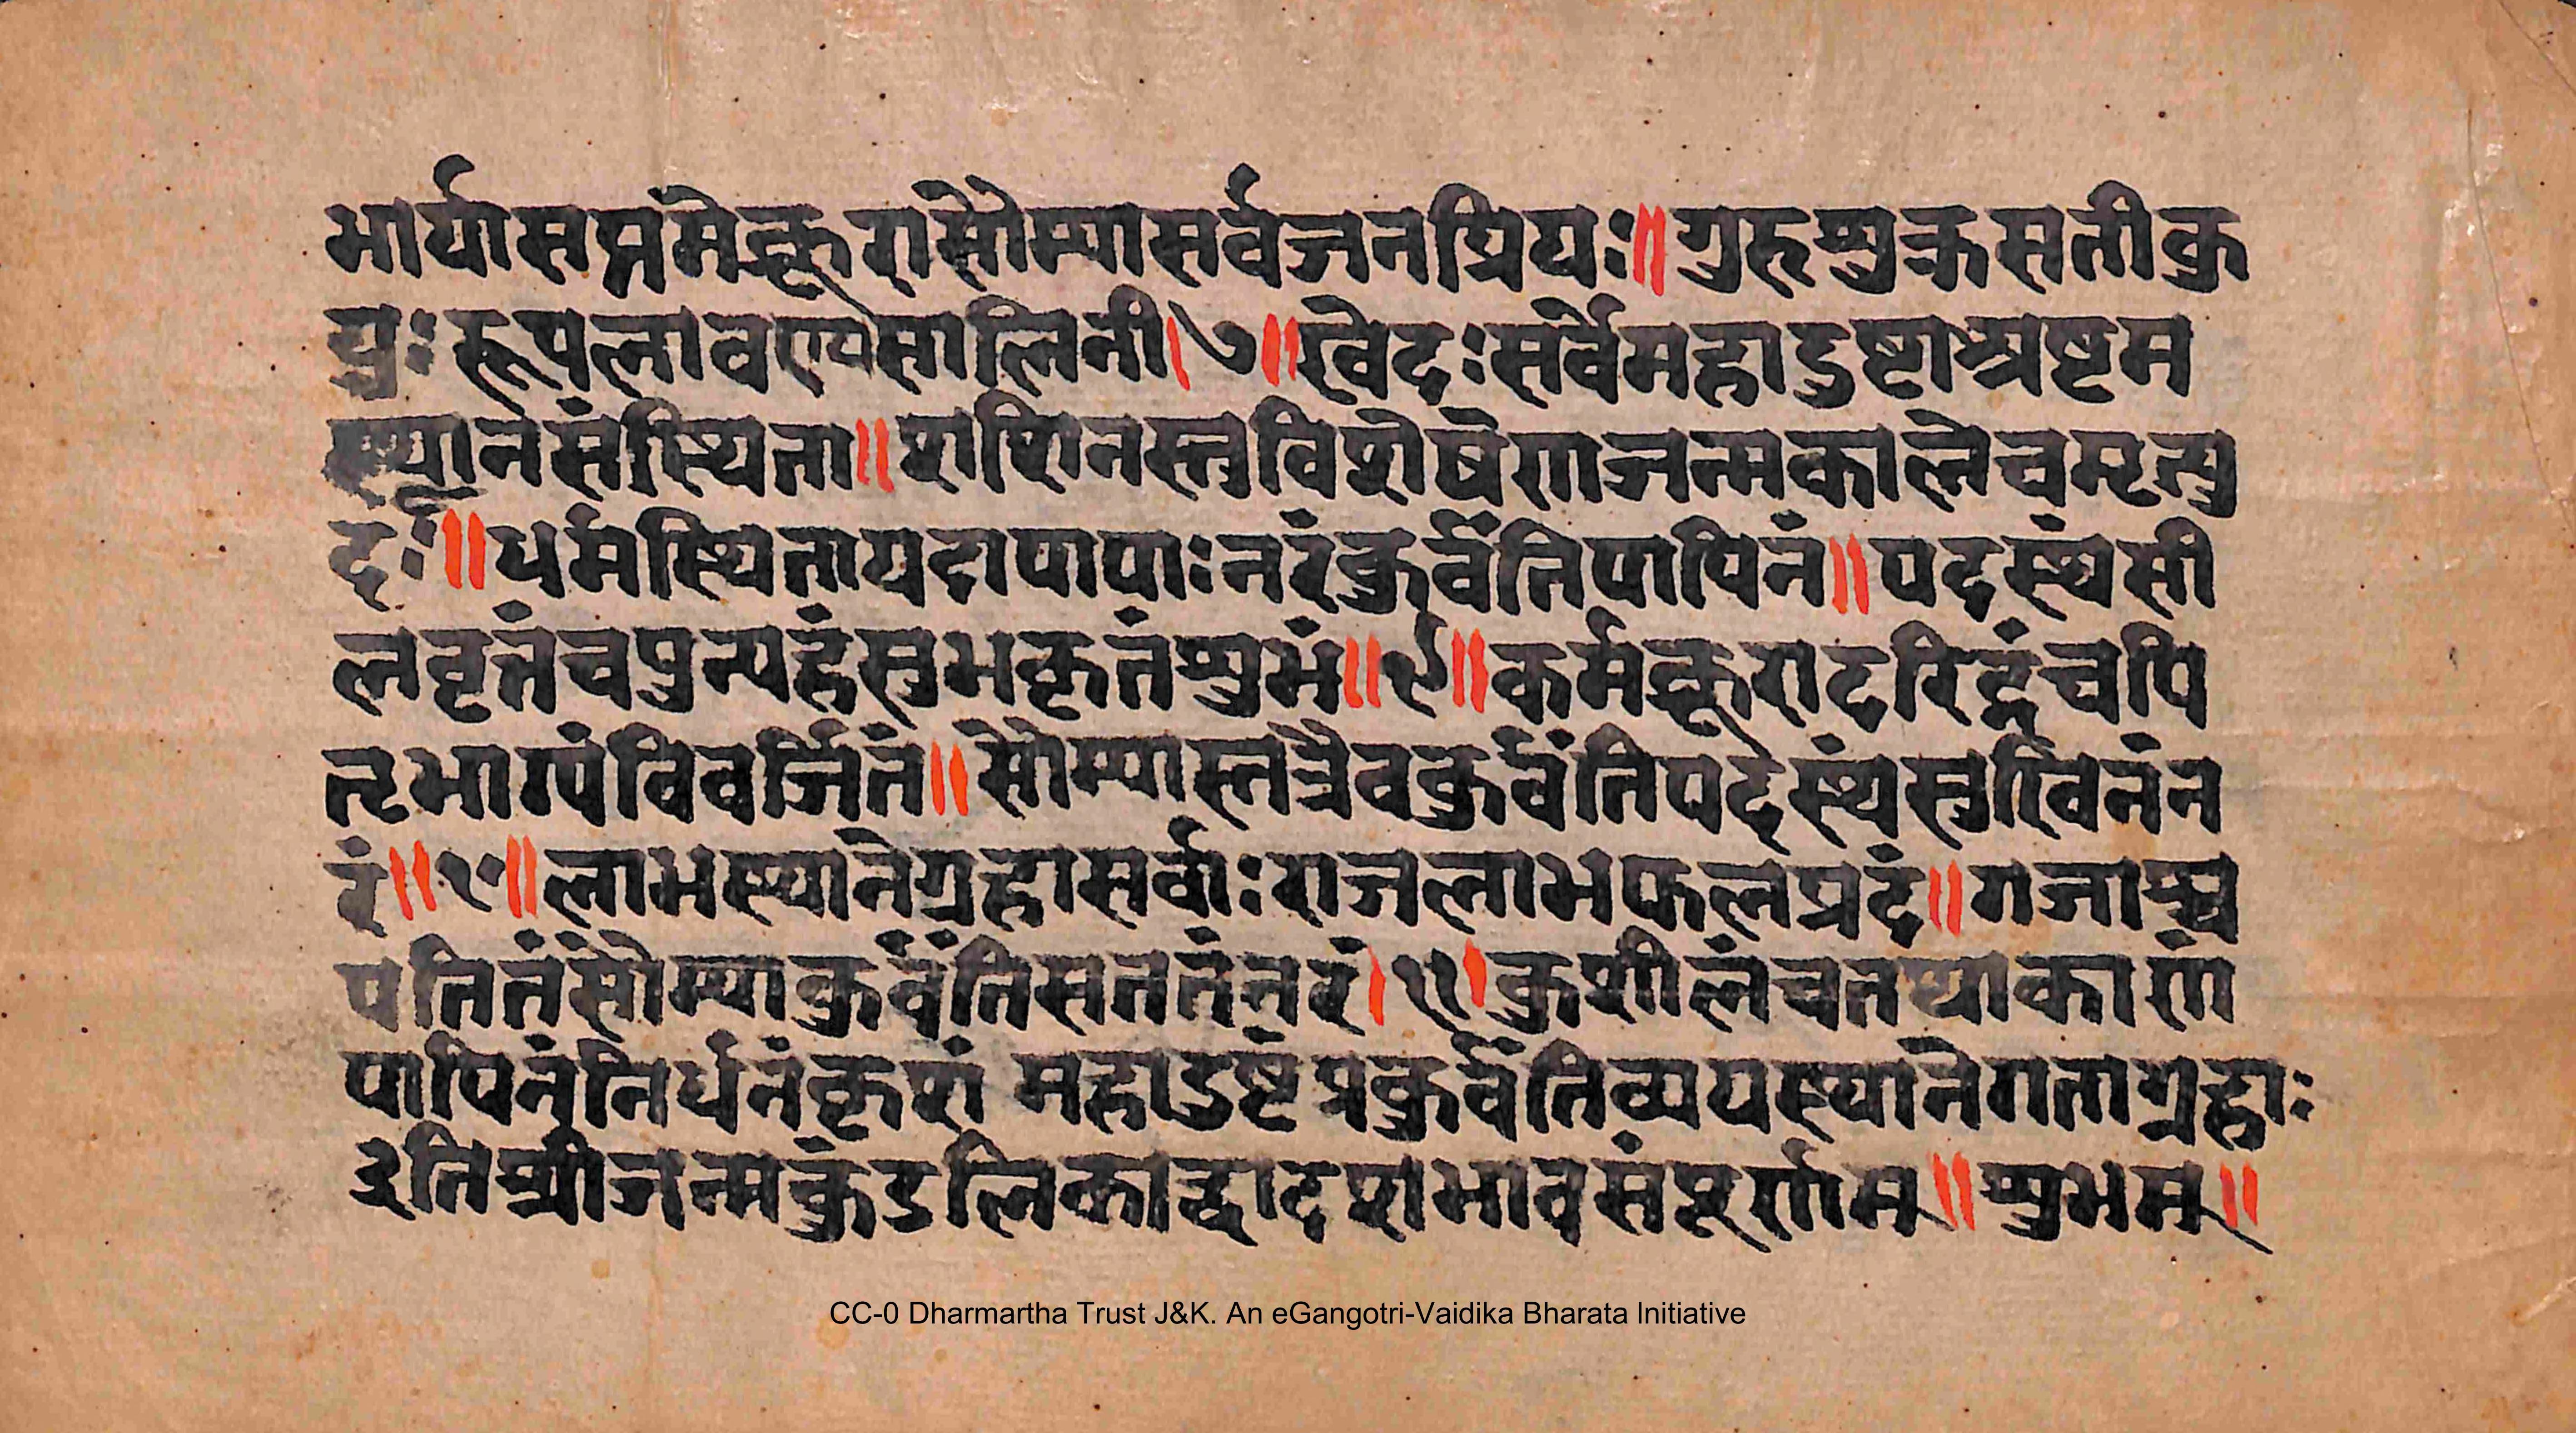 भार्यासप्तमेक्रूरासौम्यासर्वजनप्रियः॥गुरूशुक्रसतीकु
युःरूपलावएयसालिनी।७॥खेदःसर्वेमहादुष्टाअष्टम
स्थानेसंस्थिता॥शशिनस्तुविशेषेणजन्मकालेचमृत्यु
दः॥धर्मस्थितायदापापाःनरंकुर्वंतिपापिनं॥पदस्थंसी
लवृत्तंचपुन्यहंसुभकृतंशुभं॥९॥कर्मक्रूरादरिद्रंचपि
तृभाग्यंविवर्जितं॥सौम्यास्तत्रैवकुर्वंतिपदस्थंसुखिनंन
रं॥१०॥लाभस्थानेग्रहासर्वाःराजलाभफलप्रदं॥गजाश्व
पतितंसौम्याकुर्वंतिसततंनरं।११।कुशीलंचतथाकाणं
पापिनंनिर्धनंकृशं महादुष्टंप्रकुर्वंतिव्ययस्थानेगताग्रहाः
इतिश्रीजन्मकुंडलिकाद्वादशभावसंपूर्णम्॥शुभम्॥
CC-0 Dharmartha Trust J&K. An eGangotri-Vaidika Bharata Initiative